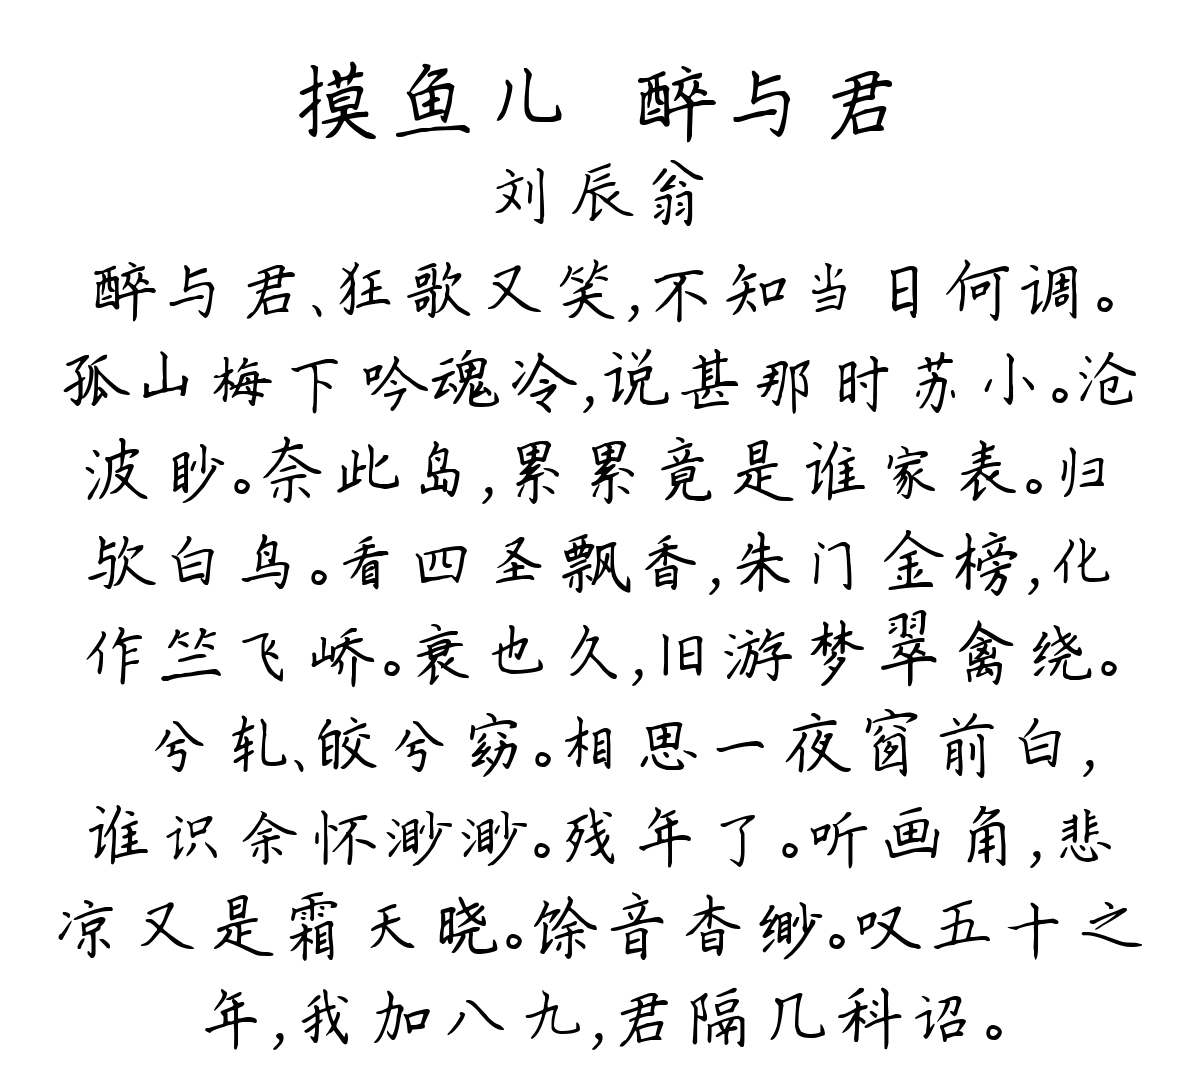 摸鱼儿 醉与君
刘辰翁
醉与君、狂歌又笑,不知当日何调。
孤山梅下吟魂冷,说甚那时苏小。沧
波眇。奈此岛,累累竟是谁家表。归
欤白鸟。看四圣飘香,朱门金榜,化
作竺飞峤。衰也久,旧游梦翠禽绕。
兮轧、皎兮窈。相思一夜窗前白,
谁识余怀渺渺。残年了。听画角,悲
凉又是霜天晓。馀音杳缈。叹五十之
年,我加八九,君隔几科诏。